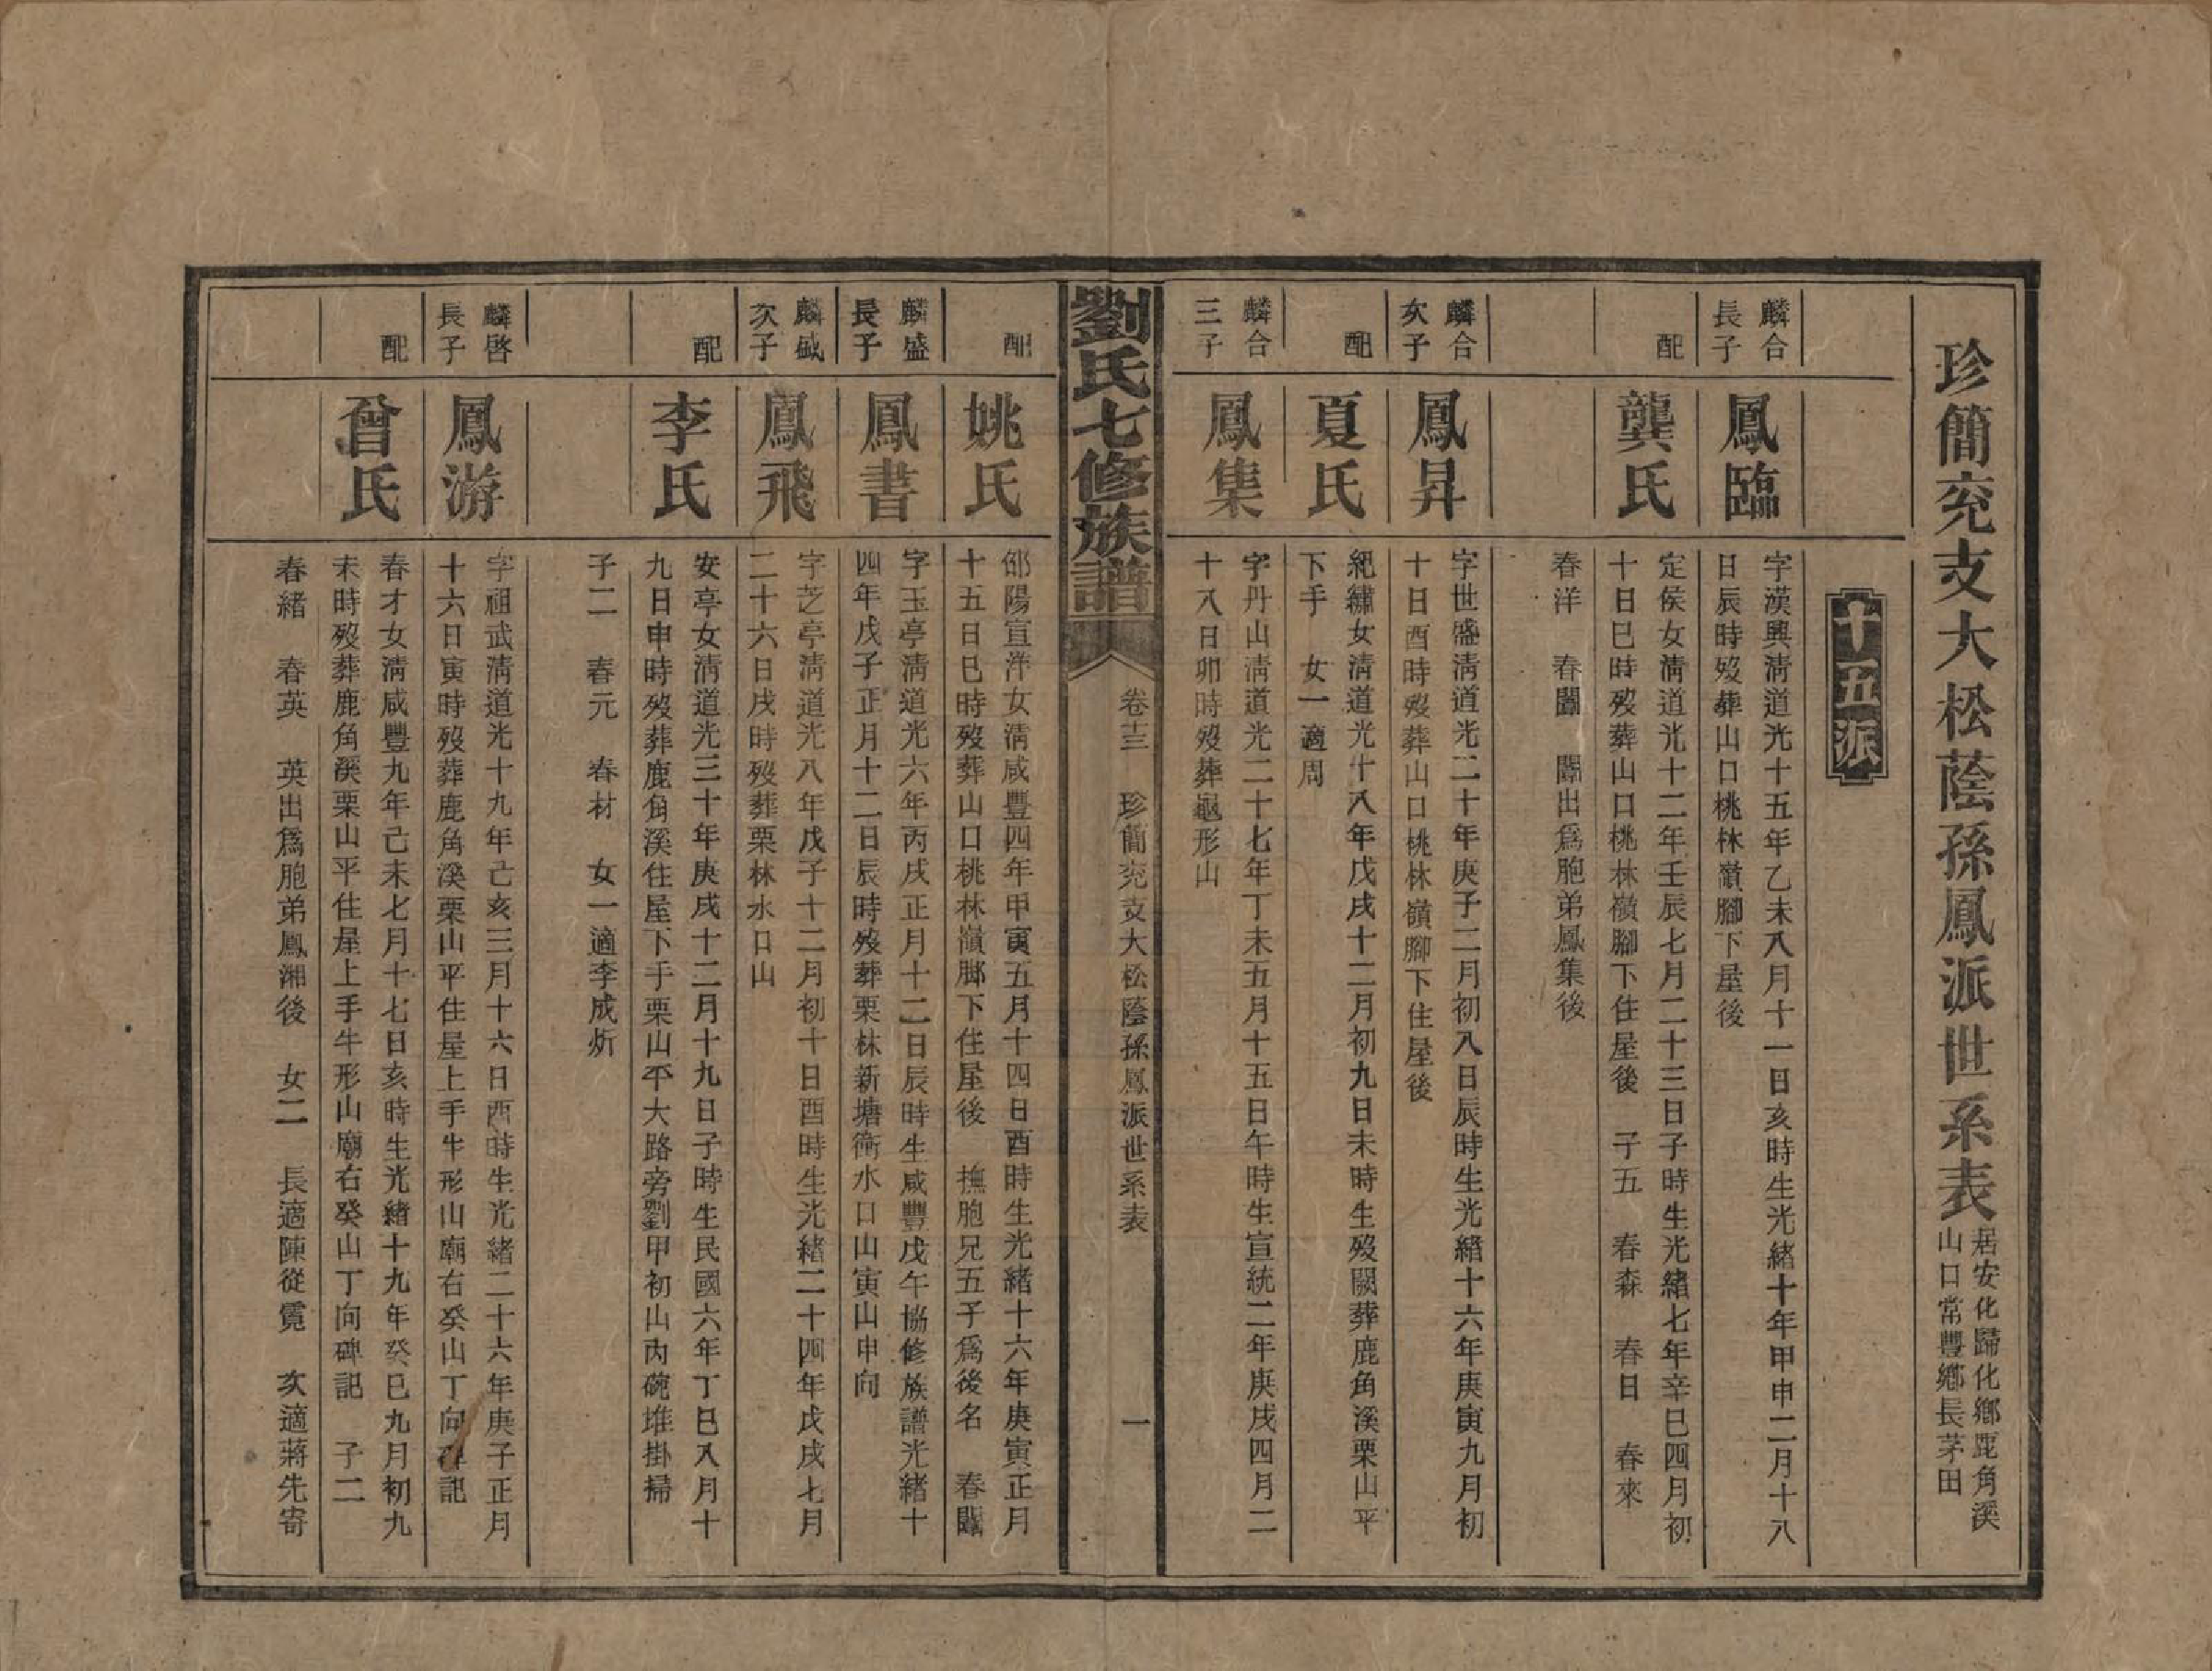 珍簡兖支大松蔭孫鳳派世系表
居安化歸化鄉鹿角溪
山口常豐鄉長茅田
十五派
麟合
長子
鳳臨
字漢興淸道光十五年乙未八月十一日亥時生光緒十年甲申二月十八
日辰時歿葬山口桃林嶺腳下屋後
配
龔氏
定侯女淸道光十二年壬辰七月二十三日子時生光緒七年辛巳四月初
十日巳時歿葬山口桃林嶺腳下住屋後 子五 春森 春日 春來
春洋 春闓 闓出爲胞弟鳳集後
麟合
次子
鳳昇
字世盛淸道光二十年庚子二月初八日辰時生光緒十六年庚寅九月初
十日酉時歿葬山口桃林嶺腳下住屋後
配
夏氏
紀繡女淸道光十八年戊戌十二月初九日未時生歿闕葬鹿角溪栗山平
下手 女一適周
麟合
三子
鳳集
字丹山淸道光二十七年丁未五月十五日午時生宣統二年庚戌四月二
十八日卯時歿葬龜形山
劉氏七修族譜
卷十三 珍簡兖支大松蔭孫鳳派世系表 一
配
姚氏
邵陽宣洋女淸咸豐四年甲寅五月十四日酉時生光緒十六年庚寅正月
十五日巳時歿葬山口桃林嶺腳下住屋後 撫胞兄五子爲後名 春闓
麟盛
長子
鳳書
字玉亭淸道光六年丙戌正月十二日辰時生咸豐戊午協修族譜光緒十
四年戊子正月十二日辰時歿葬栗林新塘衝水口山寅山申向
麟盛
次子
鳳飛
字芝亭淸道光八年戊子十二月初十日酉時生光緒二十四年戊戌七月
二十六日戌時歿葬栗林水口山
配
李氏
安亭女淸道光三十年庚戌十二月十九日子時生民國六年丁巳八月十
九日申時歿葬鹿角溪住屋下手栗山平大路旁劉甲初山內碗堆掛掃
子二 春元 春材 女一適李成炘
麟啓
長子
鳳游
字祖武淸道光十九年己亥三月十六日酉時生光緒二十六年庚子正月
十六日寅時歿葬鹿角溪栗山平住屋上手牛形山廟右癸山丁向碑記
配
曾氏
春才女淸咸豐九年己未七月十七日亥時生光緒十九年癸巳九月初九
未時歿葬鹿角溪栗山平住屋上手牛形山廟右癸山丁向碑記 子二
春緒 春英 英出爲胞弟鳳湘後 女二 長適陳從霓 次適蔣先寄